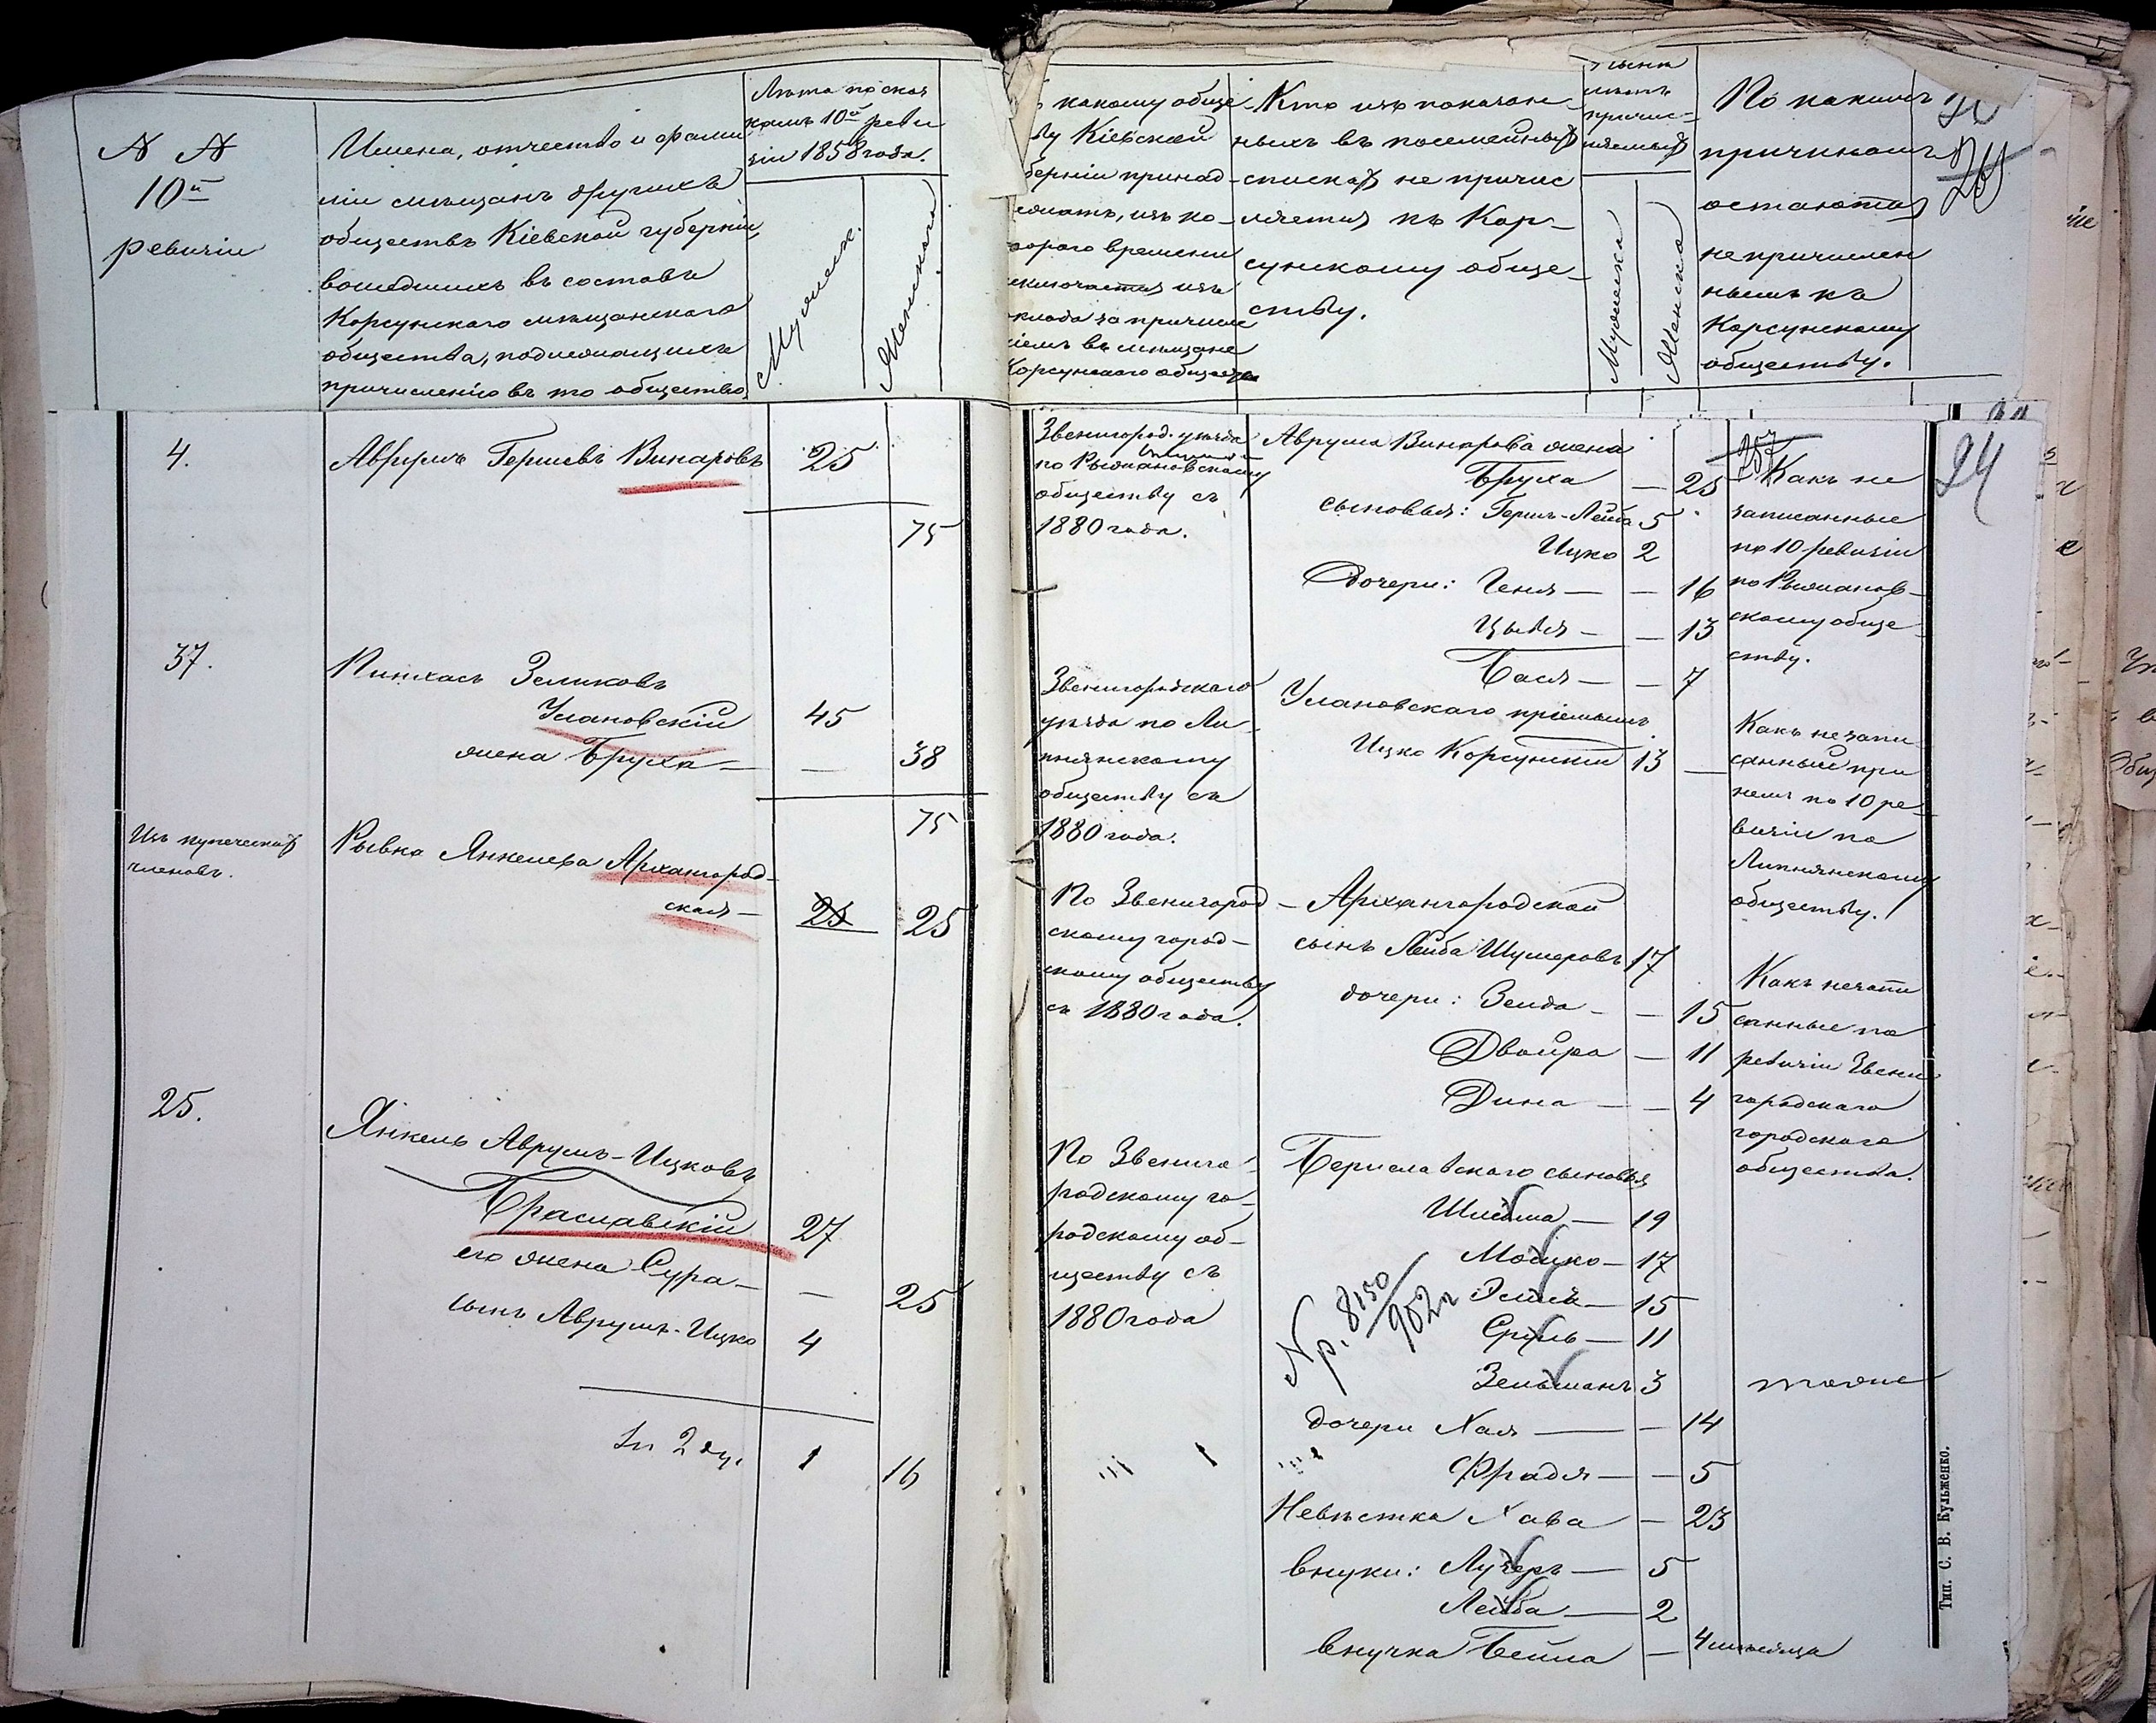 N N
10й
ревизіи
Имена, отчество и фами
ліи мѣщанъ другихъ
обществъ Кіевской губерніи,
вошедшихъ въ составъ
Корсунскаго мѣщанскаго
общества, подлежащихъ
причисленію въ то общество.
Лѣта по сказ
камъ 10й реви
зіи 1858 года.
Мужеск.
Женскаго
какому обще
ву Кіевской
берніи принад
ежатъ, изъ ко
тораго времени
сключаются изъ
клада за причисле
іемъ въ мѣщане
Корсунскаго общества
Кто изъ показан
ныхъ въ посемейныхъ
спискахъ не причис
ляется къ Кор
сунскому обще
ству.
лѣтъ
причис
ляемыхъ
Мужеска
Женска
По какимъ
причинамъ
остаются
непричислен
ными къ
Корсунскому
обществу.
4.
Аврумъ Гершевъ Винаровъ
25
75
Звенигород. уѣзда
по Рыжановскому
обществу съ
1880 года.
Аврума Винарова жена
Бруха — 25
сыновья: Гершъ-Лейба 5
Ицко 2
Дочери: Геня — — 16
Цывя — — 13
Бася — — 7
257
Какъ не
записанные
по 10 ревизіи
по Рыжанов
скому обще
ству.
24
37.
Пинхасъ Зеликовъ
Улановскій 45
жена Бруха — — 38
75
Звенигородскаго
уѣзда по Ли
пнянскому
обществу съ
1880 года.
Улановскаго пріемышъ
Ицко Корсунскій 13 —
Какъ незапи
санный при
немъ по 10 ре
визіи по
Липнянскому
обществу.
Изъ купеческихъ
членовъ.
Рывка Янкелева Архангород
ская — 25 25
По Звенигород
скому город
скому обществу
съ 1880 года.
Архангородской
сынъ Лейба Шумеровъ 17
дочери: Зелда — — 15
Двойра — 11
Дина — — 4
Какъ незапи
санные по
ревизіи Звени
городскаго
городскаго
общества.
25.
Янкель Аврумъ-Ицковъ
Браславскій 27
его жена Сура — — 25
сынъ Аврумъ-Ицко 4
1 16
По Звениго
родскому го
родскому об
ществу съ
1880 года
Бериславскаго сыновья
Шлёма — 19
Мошко — 17
15
Сруль — 11
Зельманъ 3
N р. 8150/902 г
тоже
дочери Хая — — 14
Фрадя — — 5
Невѣстка Хава — 23
внуки: Лузеръ — 5
Лейба — 2
внучка Бейла — 4 мѣсяца
Тип. С. В. Кульженко.